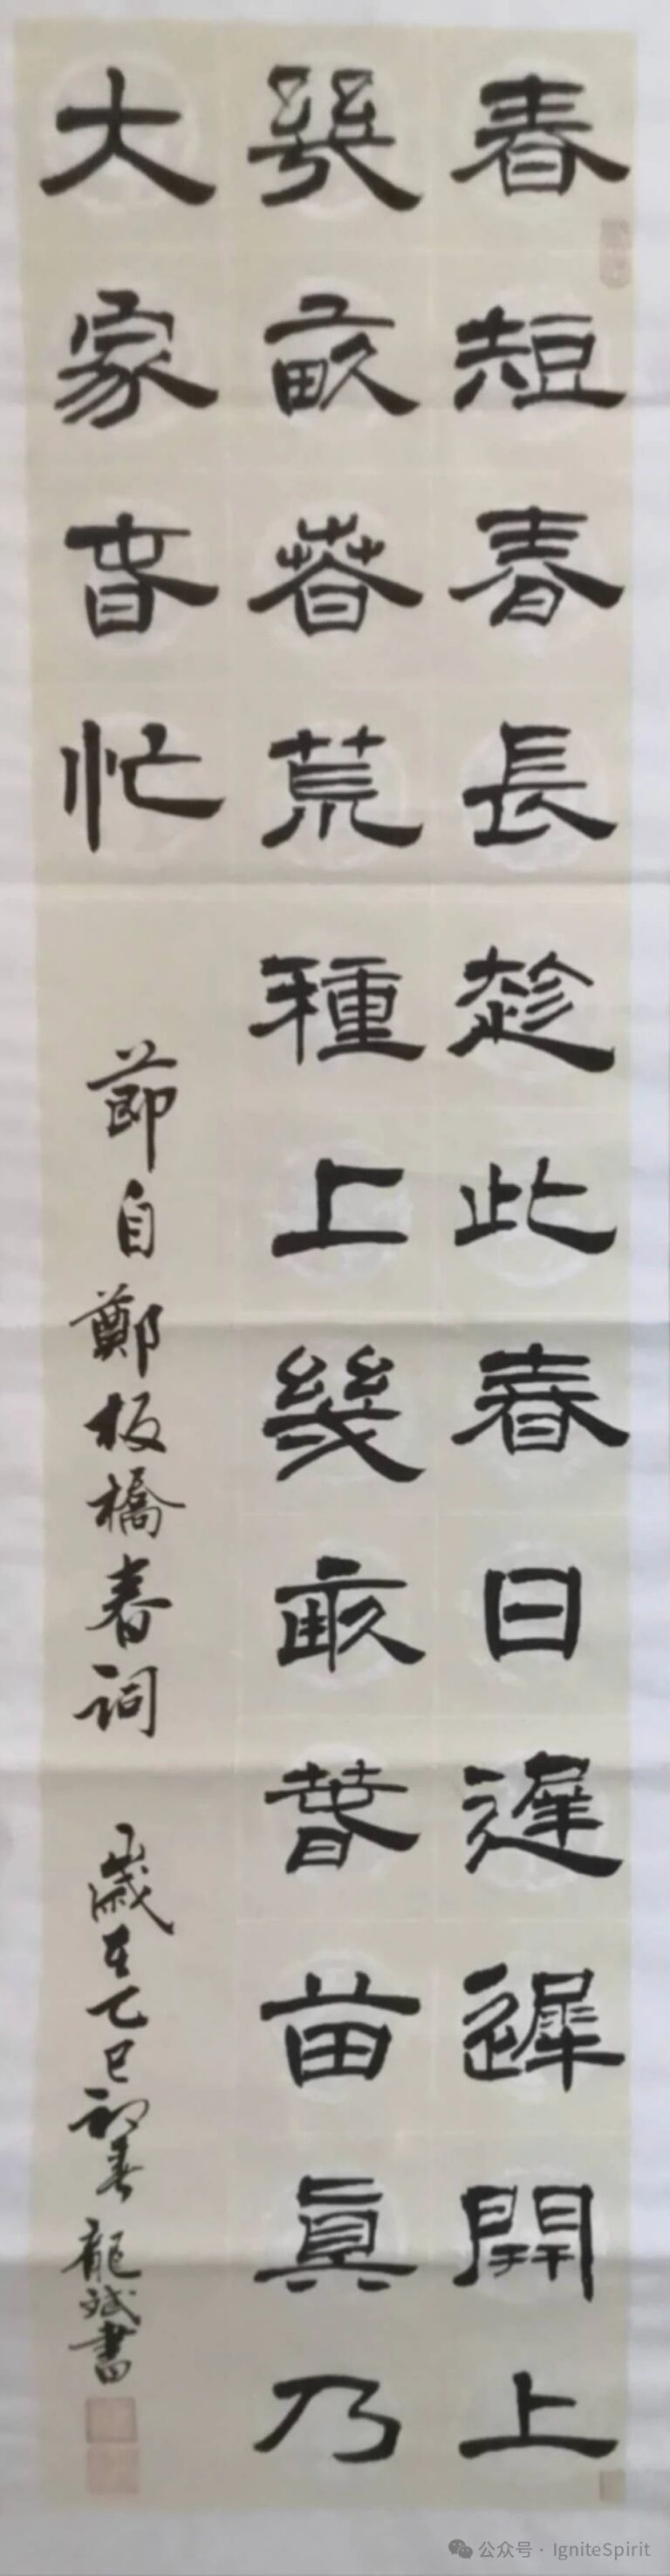 春短春長趁此春日遲遲開上
幾畝春荒種上幾畝春苗真乃
大家春忙
節自鄭板橋春詞
歲在乙巳初春龍斌書
公众号 · IgniteSpirit